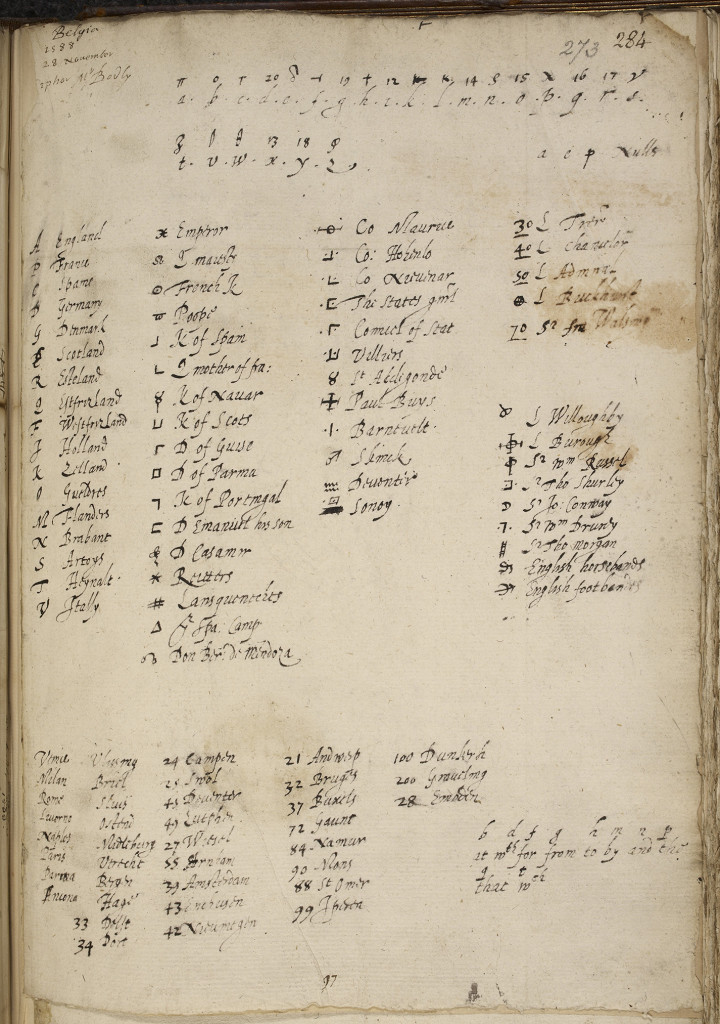 Belgia
1588
28 November
Mr Bodly
273 284
a . b . c . d . e . f . g . h . i . k . l . m . n . o . p . q . r . s .
13 18
t . v . w . x . y . z
a e p Nulls
A England
France
Spaine
Germany
G Denmark
Scotland
R Estland
Estfrizland
F Westfrizland
Holland
K Zelland
Guelders
M Flanders
N Brabant
S Artoys
T Heynalt
V Itally
Emperor
Q. maiestie
French K
Poope
K of Spain
Q mother of fra:
K of Navar
K of Scots
D of Guise
D of Parma
K of Portingal
D Emanuel his son
D Casamir
Reitters
Lansquenechts
Spa: Camp
Don Ber: de Mendoza
Co Maurice
Co: Hohenlo
Co Nieuenar
The States genrl
Councel of Stat
Villiers
St Aldigonde
Paul Buys
Barnevelt
Shinck
Deventer
Sonoy
30 L Trer
40 L Chancelor
50 L Admiral
L Buckhurst
70 Sr fra Walsing
L Willoughby
L Burough
Sr Wm Russel
Sr Tho Shurley
Sr Jo: Conway
Sr Wm Drury
Sr Tho Morgan
English horsebands
English footbandes
Venice
Milan
Rome
Livorno
Naples
Paris
Ancona
Vlissing
Briel
Sluis
Ostend
Midleberg
Utrecht
Berges
Hage
33 Delft
34 Dort
24 Campen
25 Swol
45 Deventer
49 Zutphen
27 Wesel
55 Arnham
39 Amsterdam
43 Enchusen
42 Nieumegen
21 Andwep
32 Bruges
37 Buxels
72 Gaunt
84 Namur
90 Mons
88 St Omer
99 Iperen
100 Dunkerk
200 Graveling
28 Embden
b d f g h m n p
at with for from to by and the
q t
that wch
97